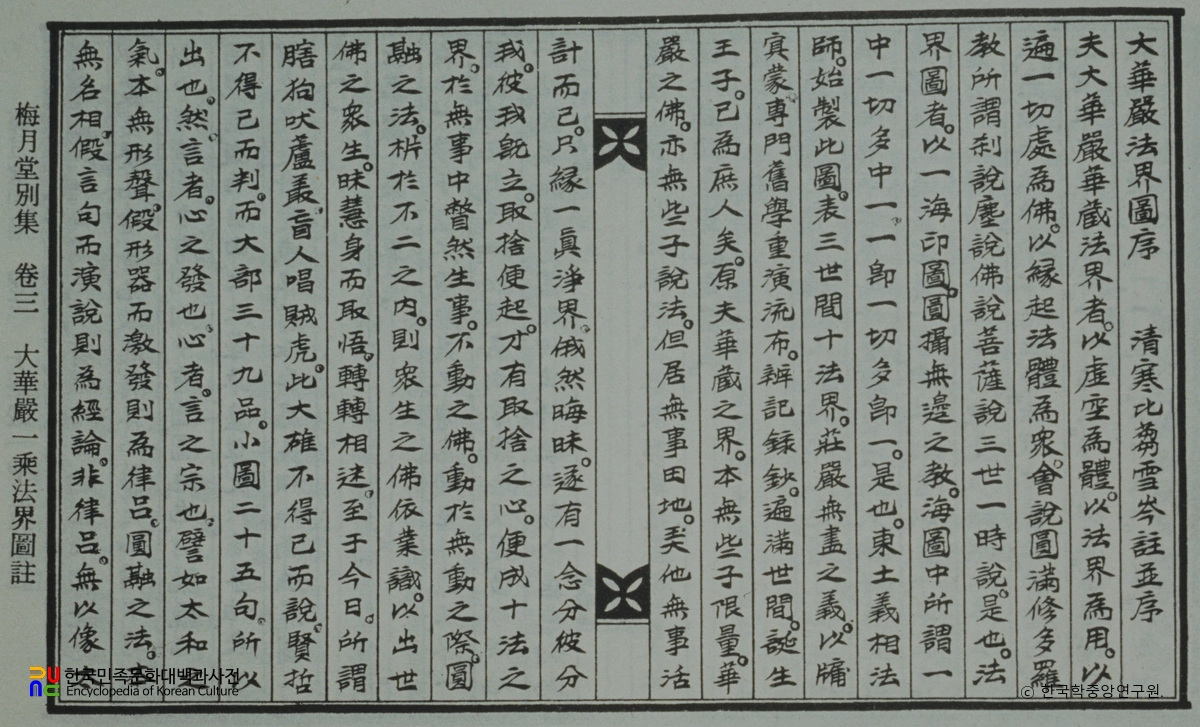 大華嚴法界圖序 清寒比蒭雪岑註並序
夫大華嚴華藏法界者。以虛空為體。以法界為用。以
遍一切處為佛。以緣起法體為衆。會說圓滿修多羅
教所謂刹說塵說佛說菩薩說三世一時說是也。法
界圖者。以一海印圖。圖攝無邊之教。海圖中所謂一
中一切多中一。一卽一切多卽一。是也。東土義相法
師。始製此圖。表三世間十法界。莊嚴無盡之義。以牖
寘蒙專門舊學重演流布。辨記錄鈔。遍滿世間。誕生
王子。已為庶人矣。原夫華藏之界。本無些子限量。華
嚴之佛。亦無些子說法。但居無事田地。美他無事活
計而已。只緣一眞淨界。俄然晦昧。遂有一念分彼分
我。彼我旣立。取捨便起。才有取捨之心。便成十法之
界。於無事中瞥然生事。不動之佛。動於無動之際。圓
融之法。析於不二之內。則衆生之佛依業識。以出世
佛之衆生。昧慧身而取悟。轉轉相迷。至于今日。所謂
瞎狗吠蘆叢。盲人唱賊虎。此大雄不得已而說。賢哲
不得已而判。而大部三十九品。小圖二十五句。所以
出也。然言者。心之發也。心者。言之宗也。譬如太和
氣。本無形聲。假形器而激發則為律呂。圓融之法。
無名相。假言句而演說則為經論。非律呂。無以像
梅月堂別集 卷三 大華嚴一乘法界圖註
한국민족문화대백과사전
Encyclopedia of Korean Culture
© 한국학중앙연구원